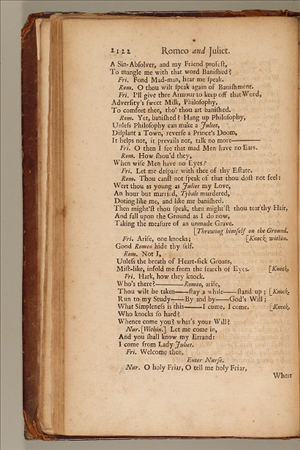 2122 Romeo and Juliet.
A Sin-Absolver, and my Friend profest,
To mangle me with that word Banished?
Fri. Fond Mad-man, hear me speak.
Rom. O thou wilt speak again of Banishment.
Fri. I'll give thee Armour to keep off that Word,
Adversity's sweet Milk, Philosophy,
To comfort thee, tho' thou art banished.
Rom. Yet, banished? Hang up Philosophy,
Unless Philosophy can make a Juliet,
Displant a Town, reverse a Prince's Doom,
It helps not, it prevails not, talk no more——
Fri. O then I see that mad Men have no Ears.
Rom. How shou'd they,
When wise Men have no Eyes?
Fri. Let me despair with thee of thy Estate.
Rom. Thou canst not speak of that thou dost not feel:
Wert thou as young as Juliet my Love,
An hour but married, Tybalt murdered,
Doting like me, and like me banished,
Then might'st thou speak, then might'st thou tear thy Hair,
And fall upon the Ground as I do now,
Taking the measure of an unmade Grave.
[Throwing himself on the Ground.
Fri. Arise, one knocks; [Knock within.
Good Romeo hide thy self.
Rom. Not I,
Unless the breath of Heart-sick Groans,
Mist-like, infold me from the search of Eyes. [Knock.
Fri. Hark, how they knock.
Who's there?—— Romeo, arise,
Thou wilt be taken——stay a while——stand up; [Knock.
Run to my Study——By and by——God's Will;
What Simpleness is this——I come, I come. [Knock.
Who knocks so hard?
Whence come you? what's your Will?
Nur. [Within.] Let me come in,
And you shall know my Errand:
I come from Lady Juliet.
Fri. Welcome then.
Enter Nurse.
Nur. O holy Friar, O tell me holy Friar,
Where